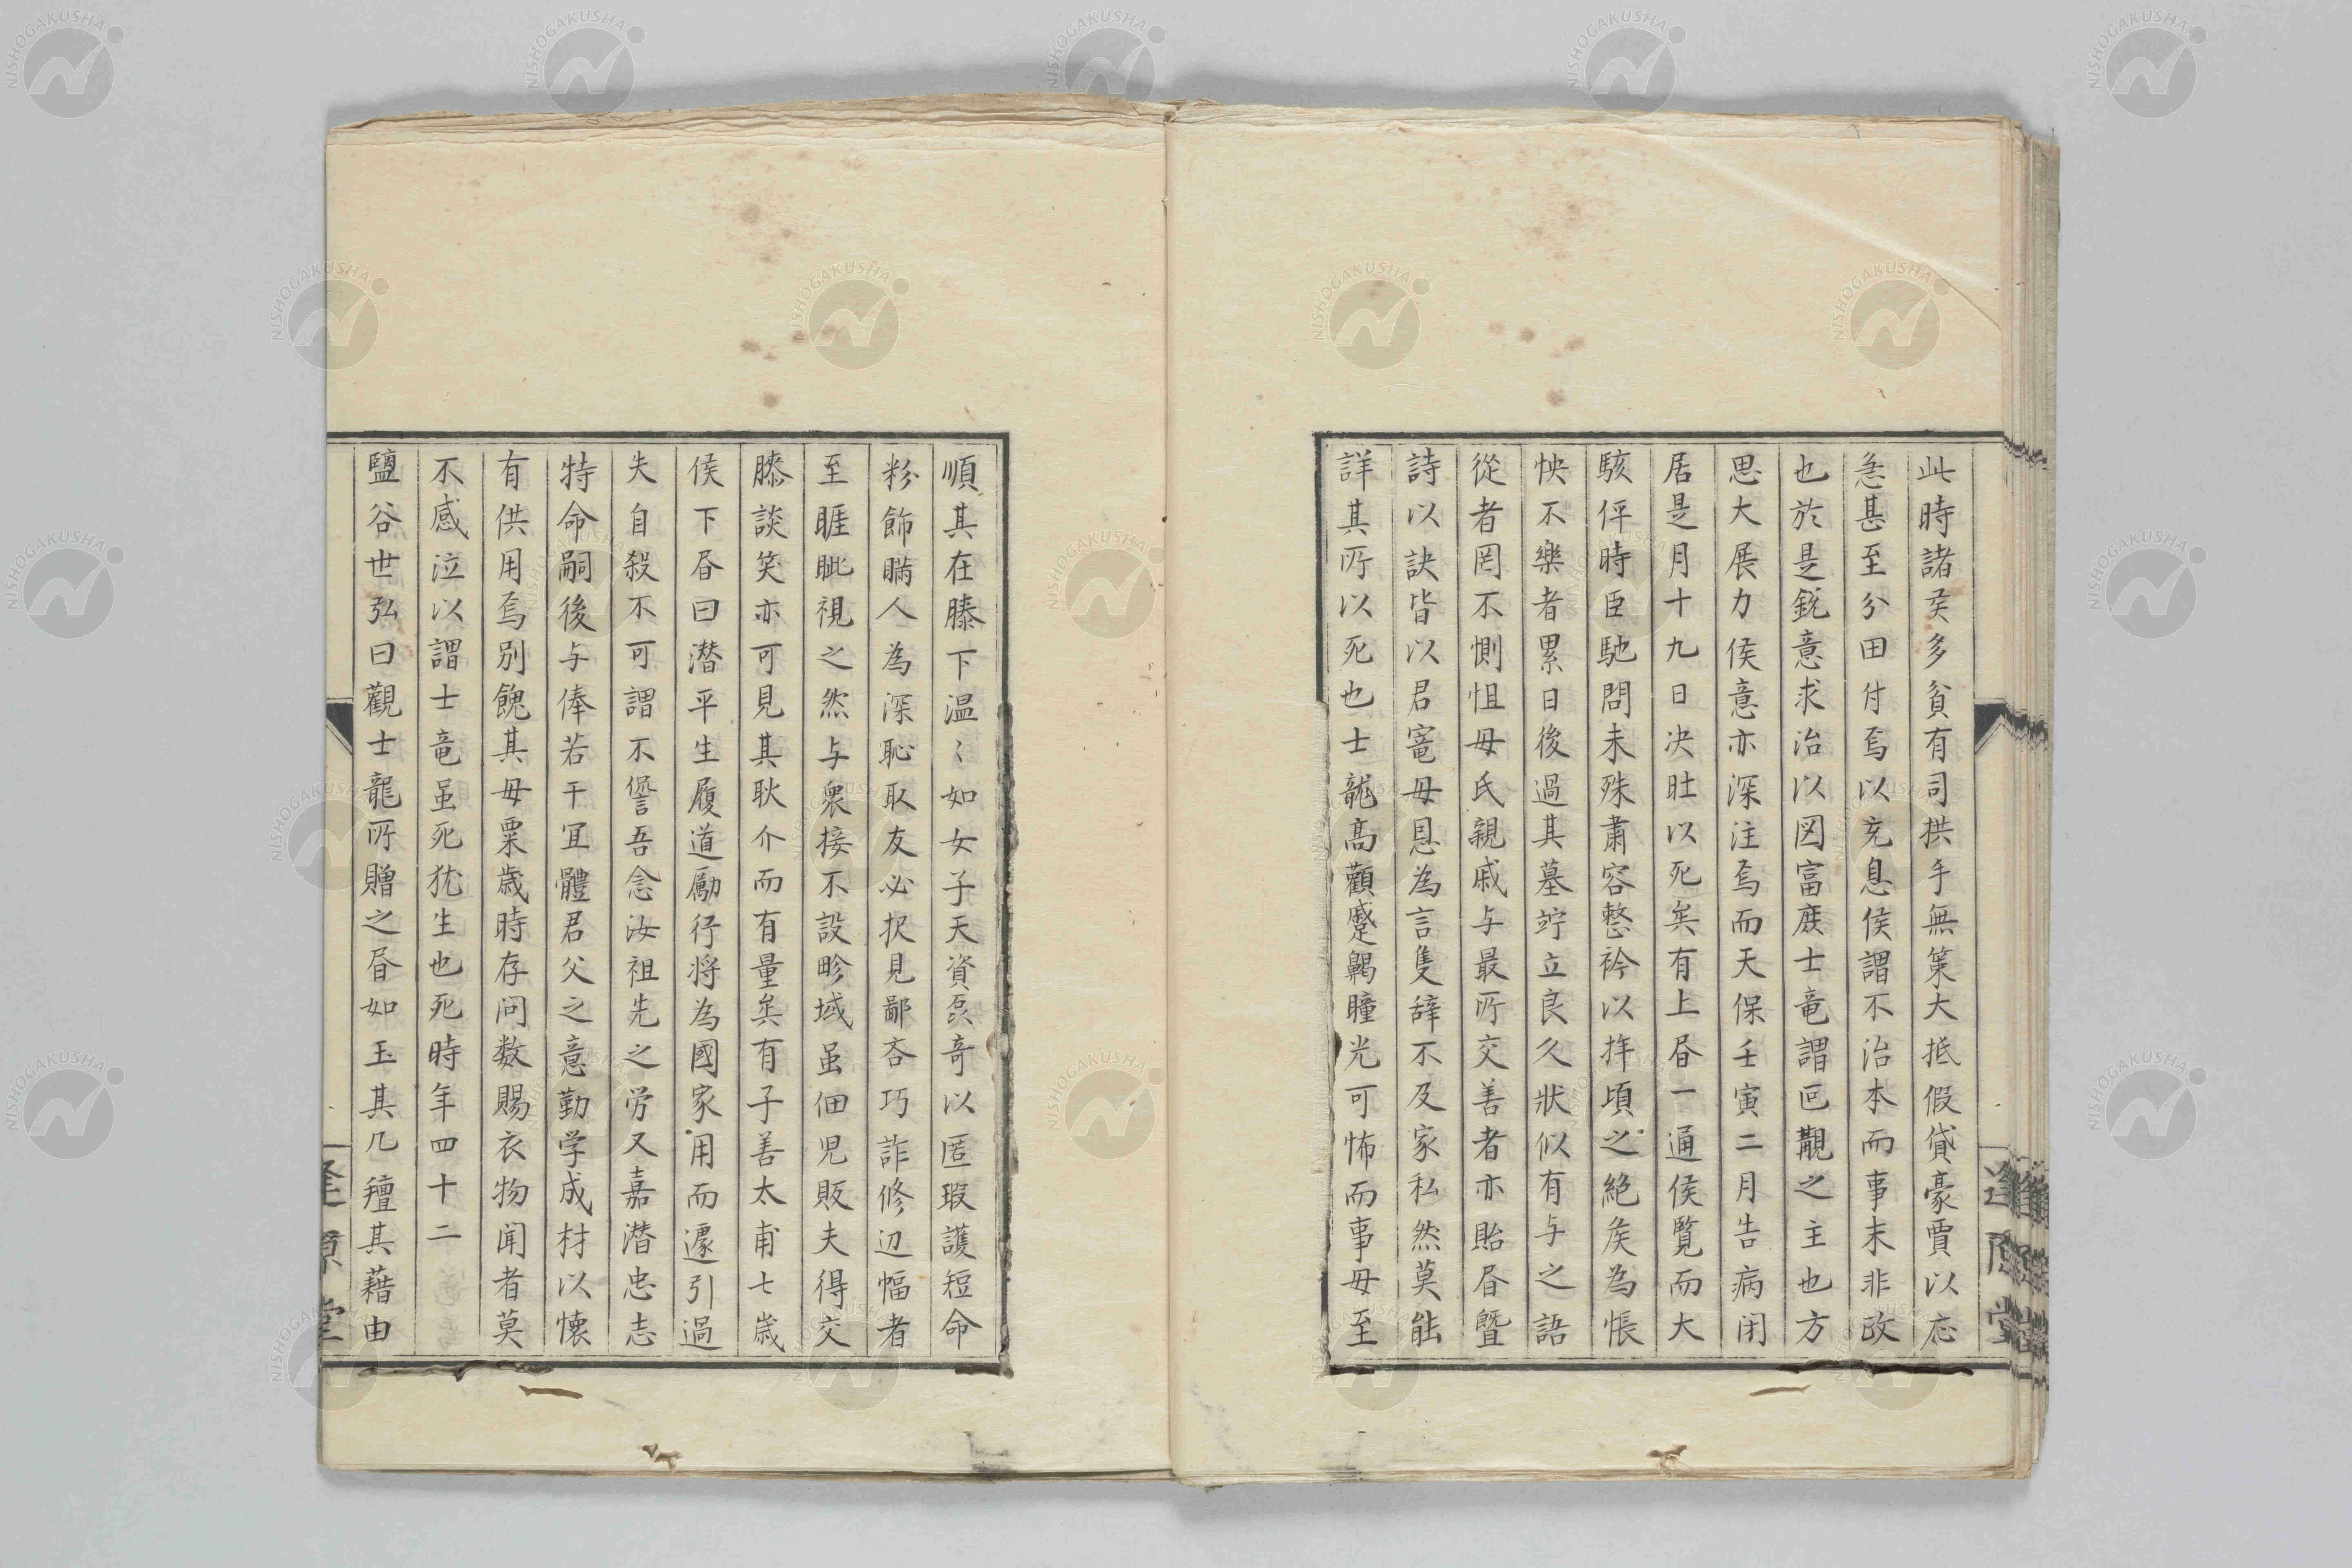 此時諸矦多貧有司拱手無策大抵假貸豪賈以応
急甚至分田付焉以充息侯謂不治本而事末非政
也於是銳意求治以図富庶士竜謂叵覯之主也方
思大展力侯意亦深注焉而天保壬寅二月告病閉
居是月十九日决肚以死矣有上昏一通侯覧而大
駭伻時臣馳問未殊肅容整衿以拜頃之絶矦為悵
怏不楽者累日後過其墓竚立良久状似有与之語
從者罔不惻怛母氏親戚与最所交善者亦貽昏曁
詩以訣皆以君寵母恩為言隻辞不及家私然莫能
詳其所以死也士龍髙顴蹙齃瞳光可怖而事母至
順其在膝下温〻如女子天資磊竒以匿瑕護短命
粉飾瞞人為深恥取友必択見鄙吝巧詐修辺幅者
至睚眦視之然与衆接不設畛域虽佃児販夫得交
膝談笑亦可見其耿介而有量矣有子善太甫七歳
侯下昏曰潜平生履道勵行将為國家用而遽引過
失自殺不可謂不諐吾念汝祖先之労又嘉潜忠志
特命嗣後与俸若干冝體君父之意勤学成材以懐
有供用焉別餽其母粟歳時存问数賜衣物闻者莫
不感泣以謂士竜虽死犹生也死時年四十二
鹽谷世弘曰觀士龍所贈之昏如玉其几襢其藉由
逢原堂